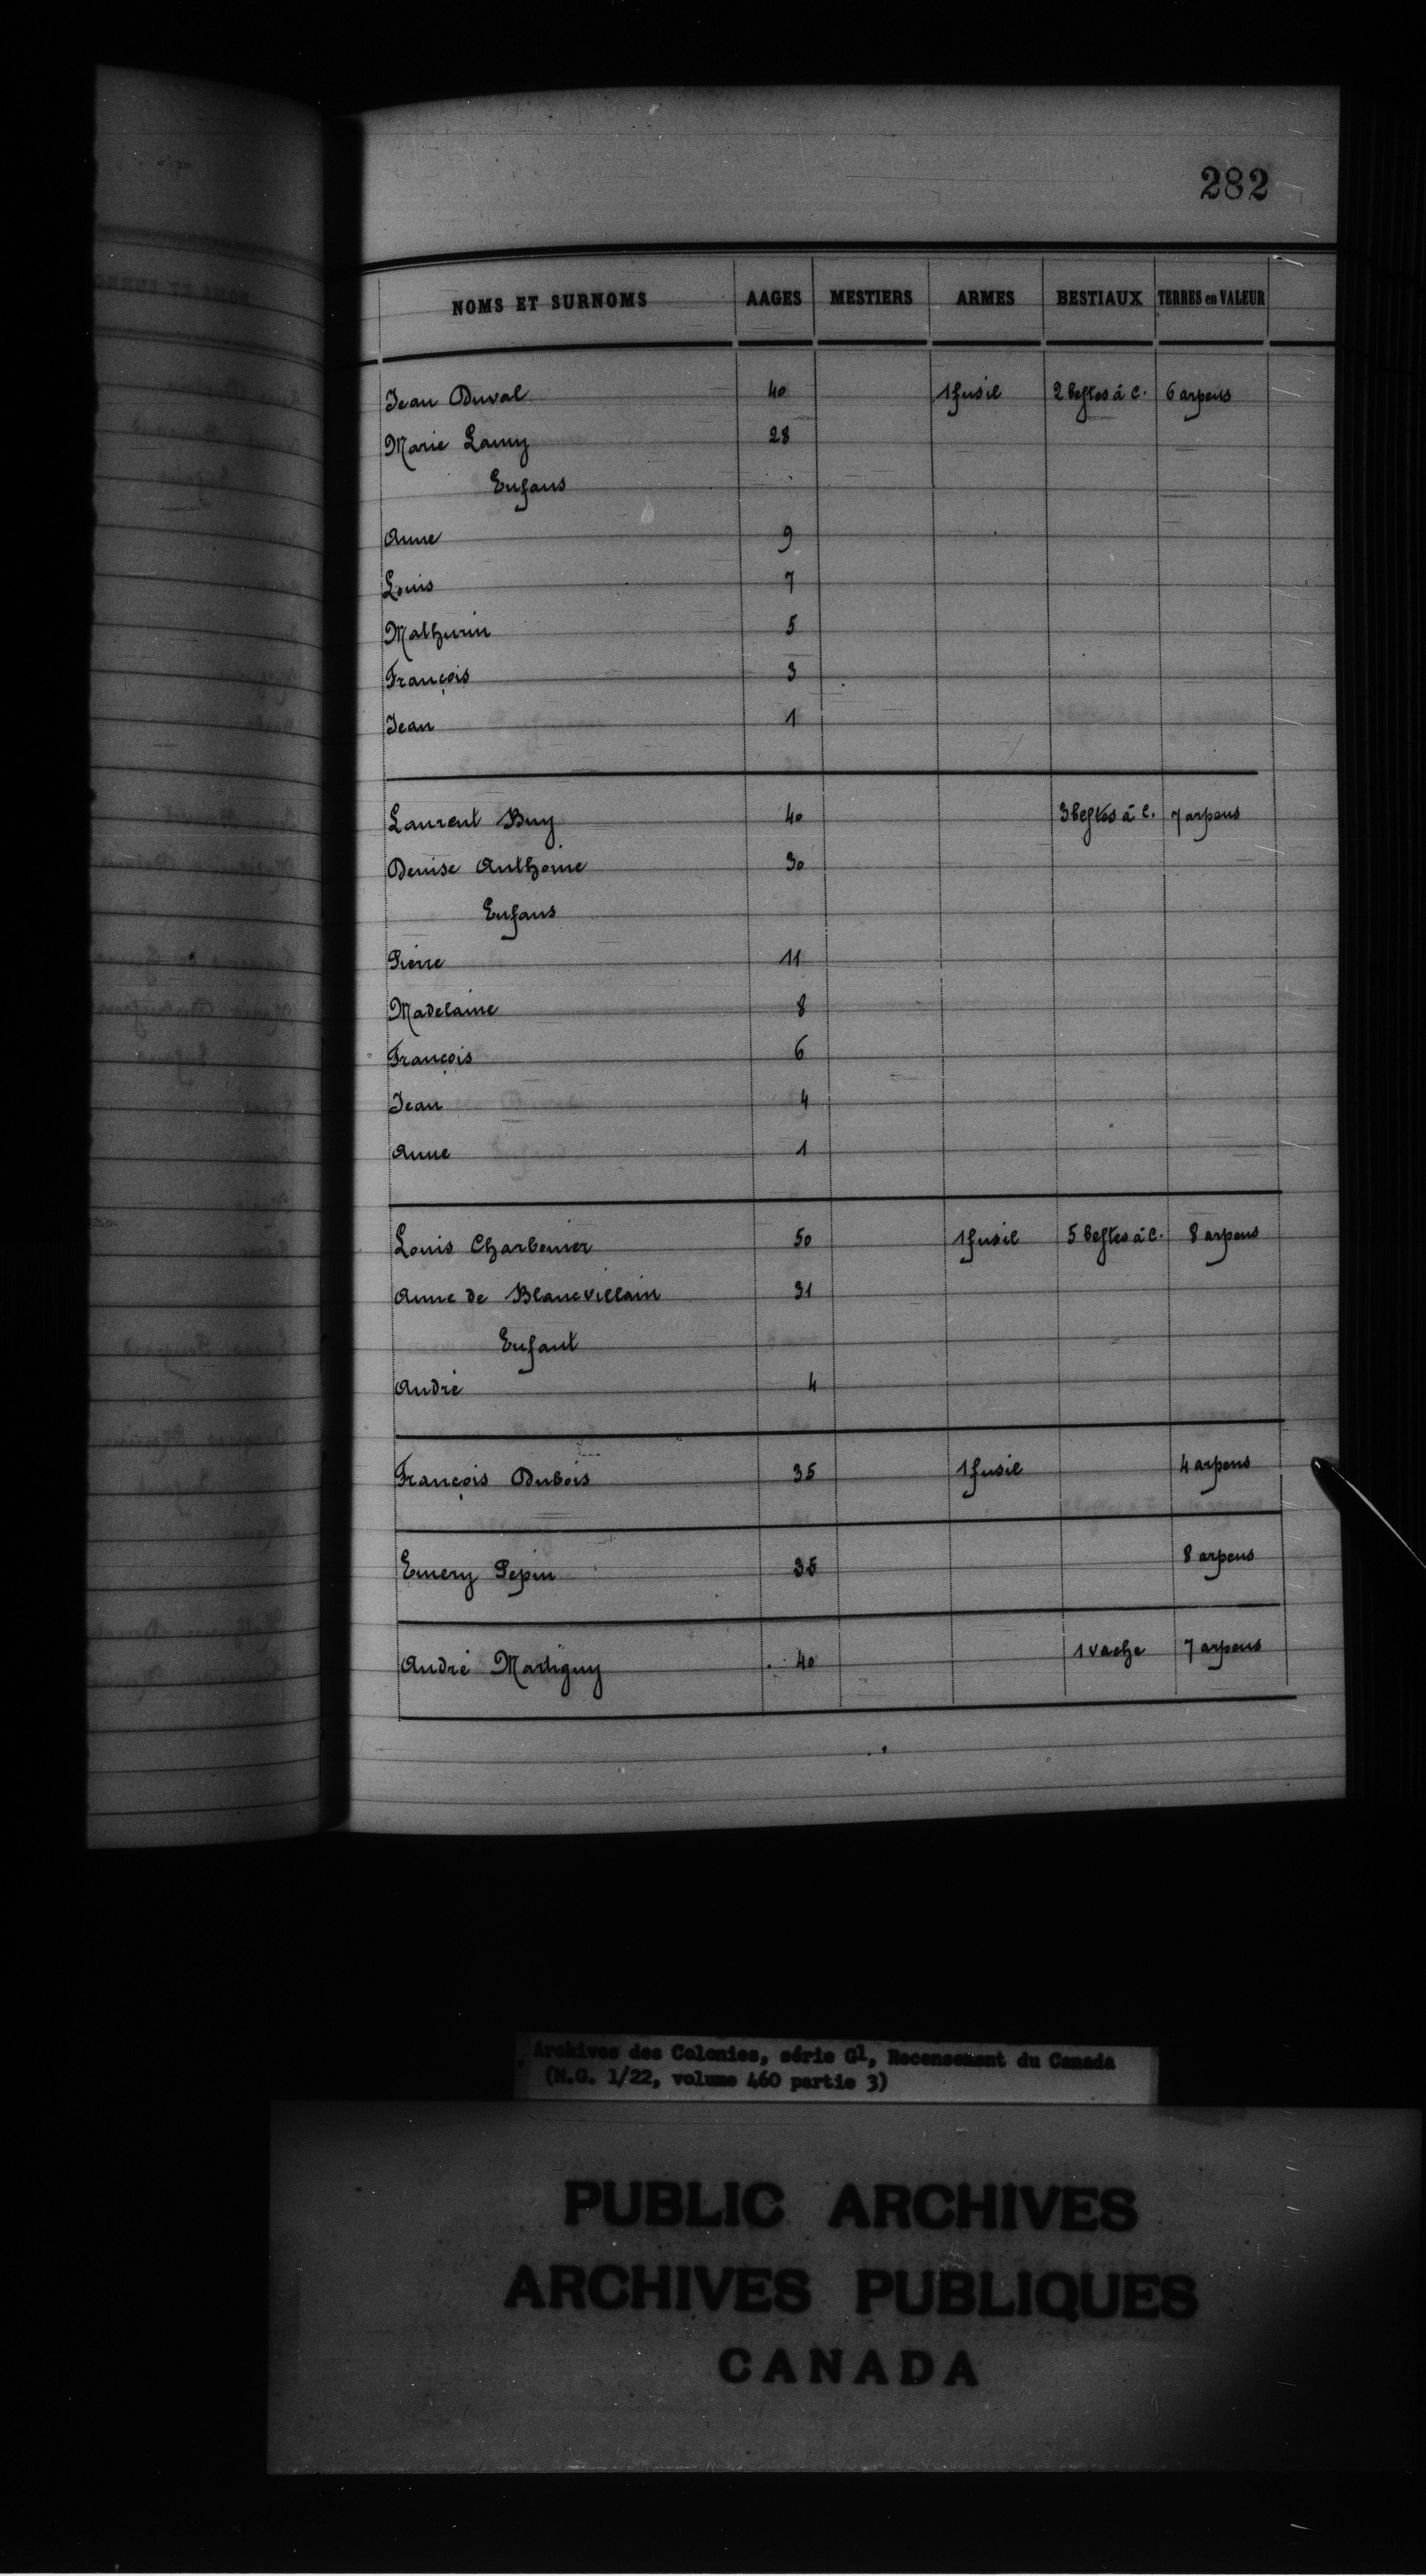 282
NOMS ET SURNOMS AAGES MESTIERS ARMES BESTIAUX TERRES en VALEUR
Jean Duval 40 1 fusil 2 bestes à C. 6 arpens
Marie Lamy 28
Enfans
Anne 9
Louis 7
Mathurin 5
François 3
Jean 1
Laurent Buy 40 3 bestes à C. 7 arpens
Denise Anthoine 30
Enfans
Pierre 11
Madelaine 8
François 6
Jean 4
Anne 1
Louis Charbonier 50 1 fusil 5 bestes à C. 8 arpens
Anne de Blancvillain 31
Enfant
André 4
François Dubois 35 1 fusil 4 arpens
Emery Pepin 35 8 arpens
André Martigny 40 1 vache 7 arpens
Archives des Colonies, série G1, Recensement du Canada
(M.G. 1/22, volume 460 partie 3)
PUBLIC ARCHIVES
ARCHIVES PUBLIQUES
CANADA